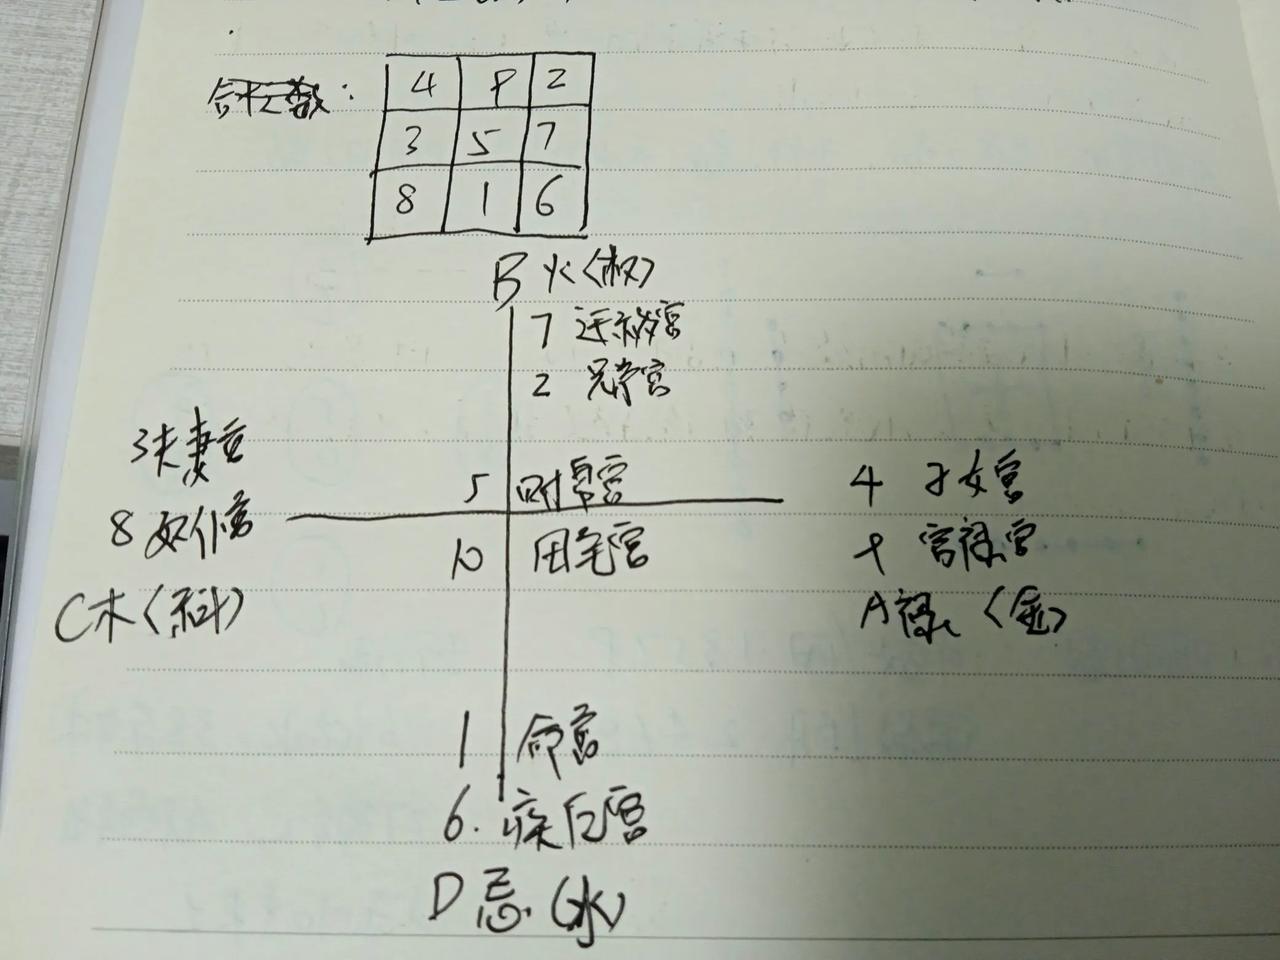 4 9 2
3 5 7
8 1 6
B 火(权)
7 迁移宫
2 兄弟宫
3夫妻宫
8 奴仆宫
C木(科)
5 财帛宫
10 田宅宫
4 子女宫
9 官禄宫
A禄(金)
1 命宫
6. 疾厄宫
D 忌(水)